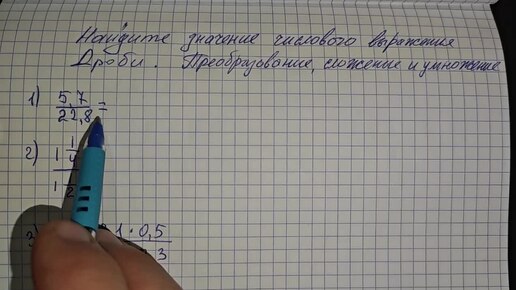 Найдите значение числового выражения
Дроби. Преобразование, сложение и умножение
1) 5,7
22,8 =
2) 1 1
1
3) 1 · 0,5
3